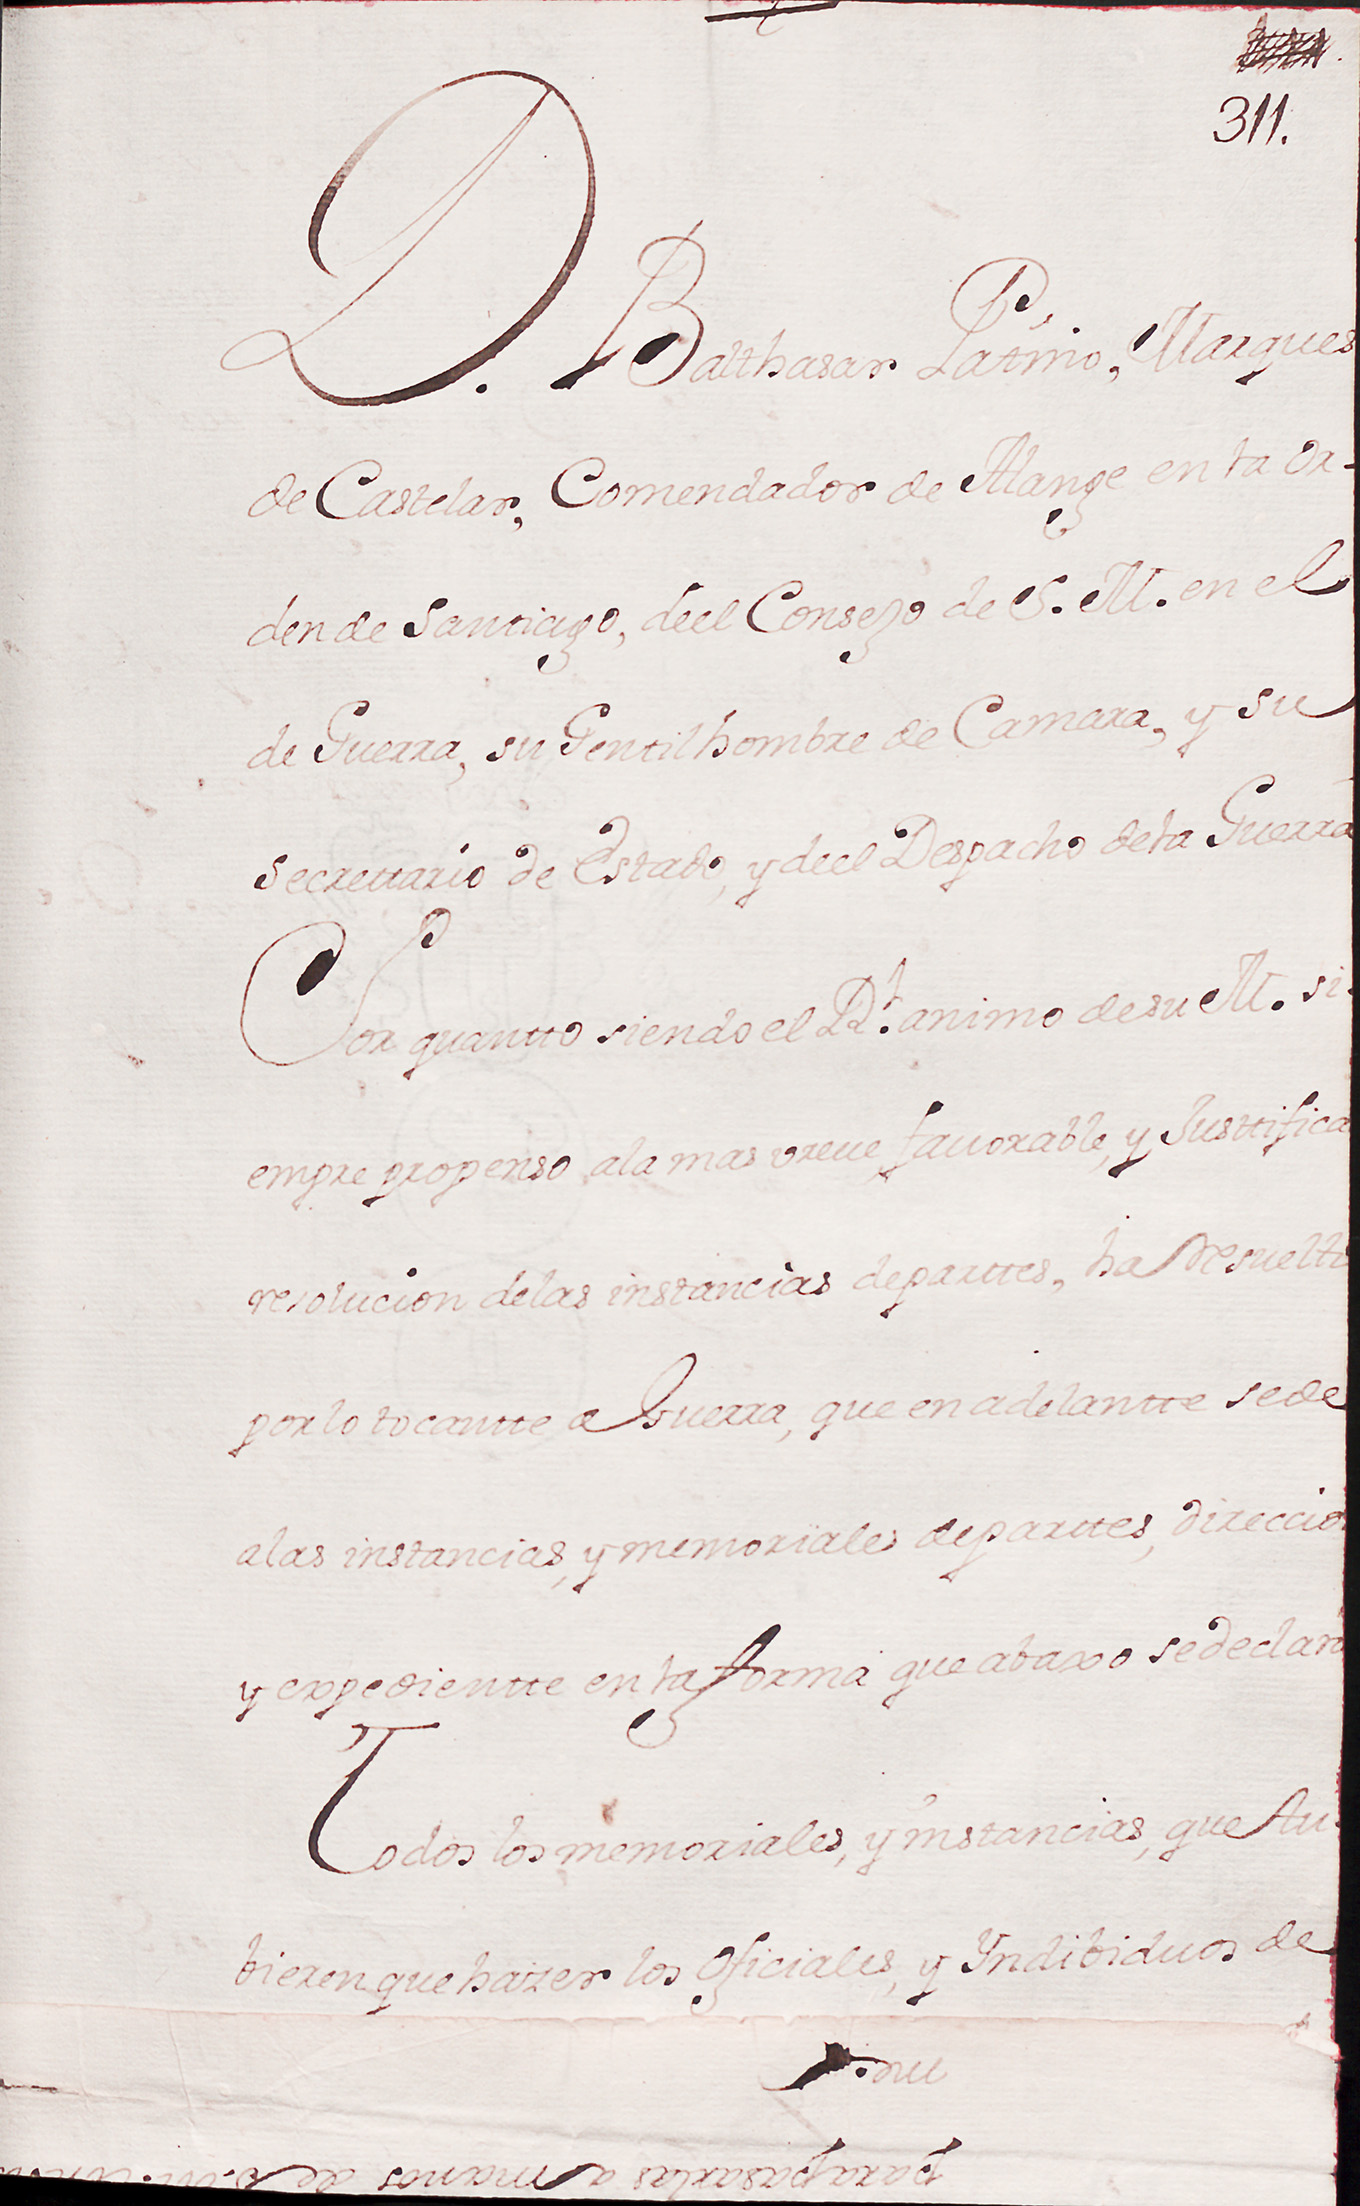 311.
D. Balthasar Patiño, Marques
de Castelar, Comendador de Alange en la Or-
den de Santiago, deel Consejo de S. M. en el
de Guerra, su Gentilhombre de Camara, y su
Secrettario de Estado, y deel Despacho dela Guerra
Por quantto siendo el Rl. animo de su M. si-
empre propenso ala mas vreue, fauorable, y Justtifica
resolucion delas instancias departtes, ha resuelto
por lo tocantte a Guerra, que en adelantte se de
alas instancias, y memoriales departtes, direccion
y expedientte en la forma que abaxo se declara
Todos los memoriales, y instancias, que tu-
bieren que hazer los Oficiales, y Yndibiduos de
para pasarlas a manos de S. M.